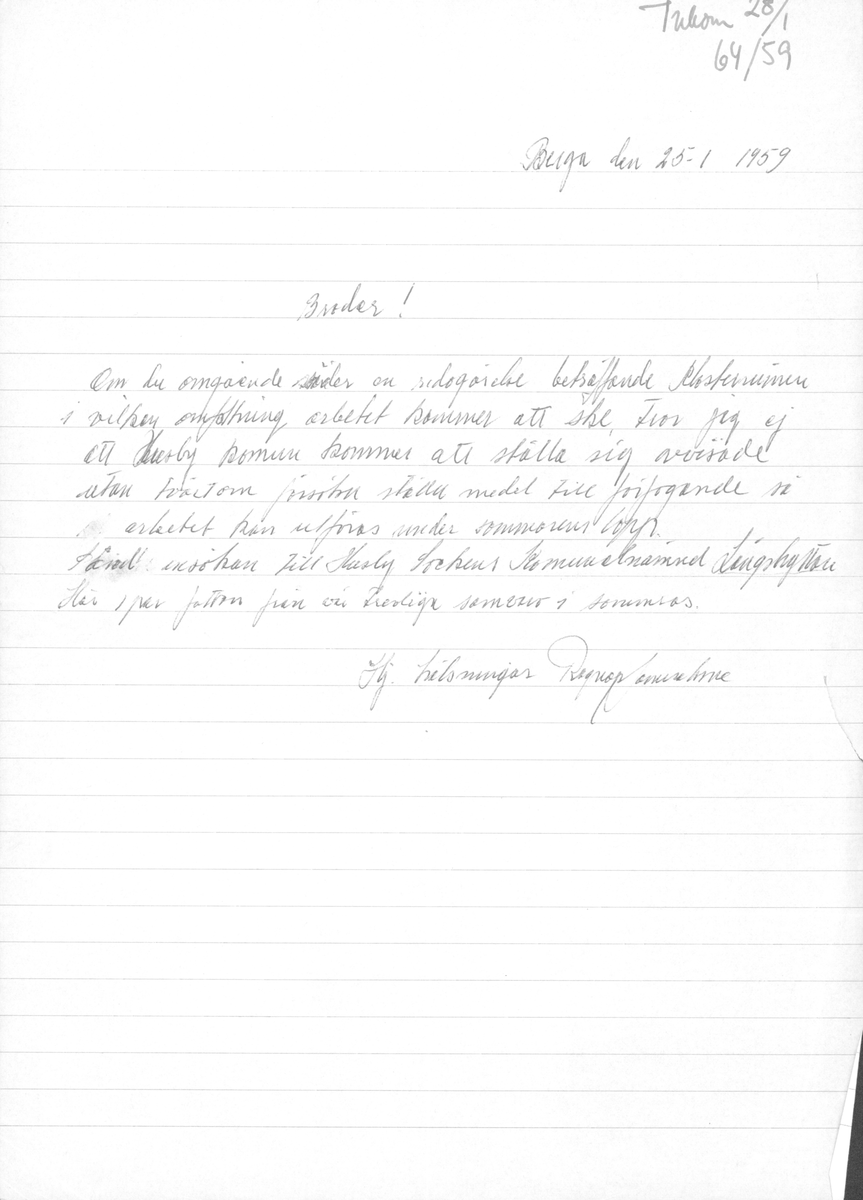 Inkom 28/1
64/59
Berga den 25-1 1959
Broder!
Om du omgående sänder en redogörelse beträffande Klosterruinen
i vilken omfattning arbetet kommer att ske, tror jag ej
att Husby komun kommer att ställa sig avvisade
utan tvärtom försöka ställa medel till förfogande så
arbetet kan utföras under sommarens lopp.
Sänd ansökan till Husby Sockens Komunalnämnd Långshyttan
Här par foton från vår trevliga samvaro i somras.
Hj. hälsningar Ragnar